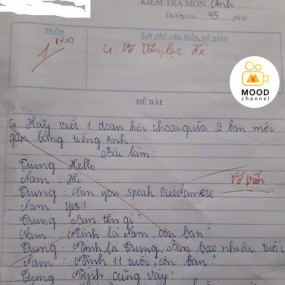 KIỂM TRA MÔN: Anh
Thời gian: 45 phút
Điểm
Lời phê của thầy, cô giáo
1
G: Vớ vẩn, lạc đề
MOOD
channel
ĐỀ BÀI
G Hãy viết 1 đoạn hội thoại giữa 2 bạn mới
gặp bằng tiếng Anh.
Bài làm
Dung: Hello
Nam: Hi
Vớ vẩn
Dung: Can you speak Vietnamese
Nam: yes!
Dung: Bạn tên gì?
Nam: Mình là Nam còn bạn
Dung: Mình là Dung, bạn bao nhiêu tuổi
Nam: Mình 11 tuổi còn bạn
Dung: Mình cũng vậy!